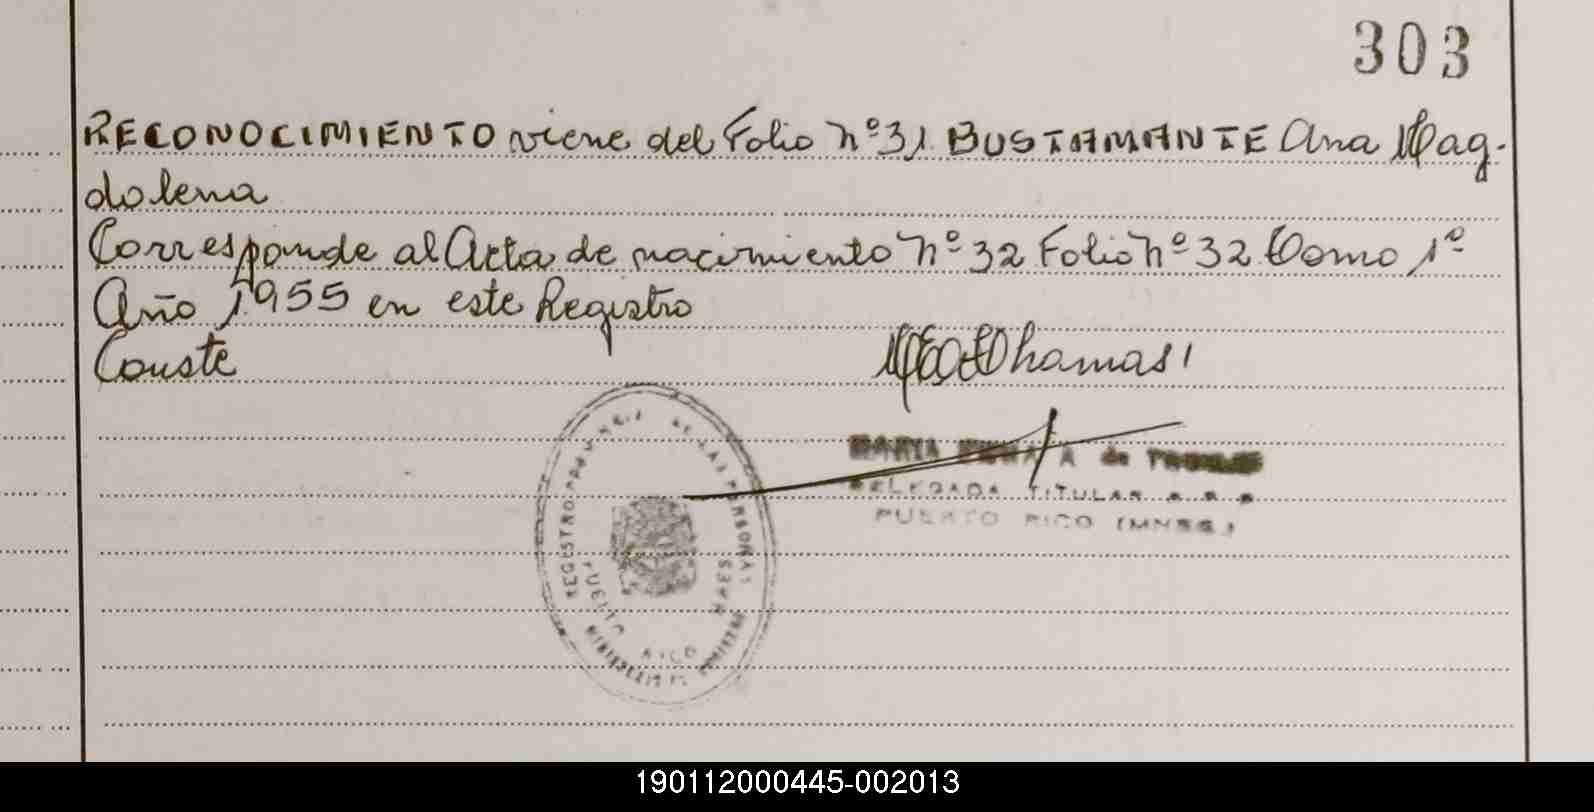 303
RECONOCIMIENTO viene del Folio Nº 31 BUSTAMANTE Ana Mag-
dalena
Corresponde al Acta de nacimiento Nº 32 Folio Nº 32 Tomo 1º
Año 1955 en este Registro
Conste
MARIA A de
DELEGADA TITULAR
PUERTO RICO (MNES.)
REGISTRO DE LAS PERSONAS
PUERTO RICO
190112000445-002013